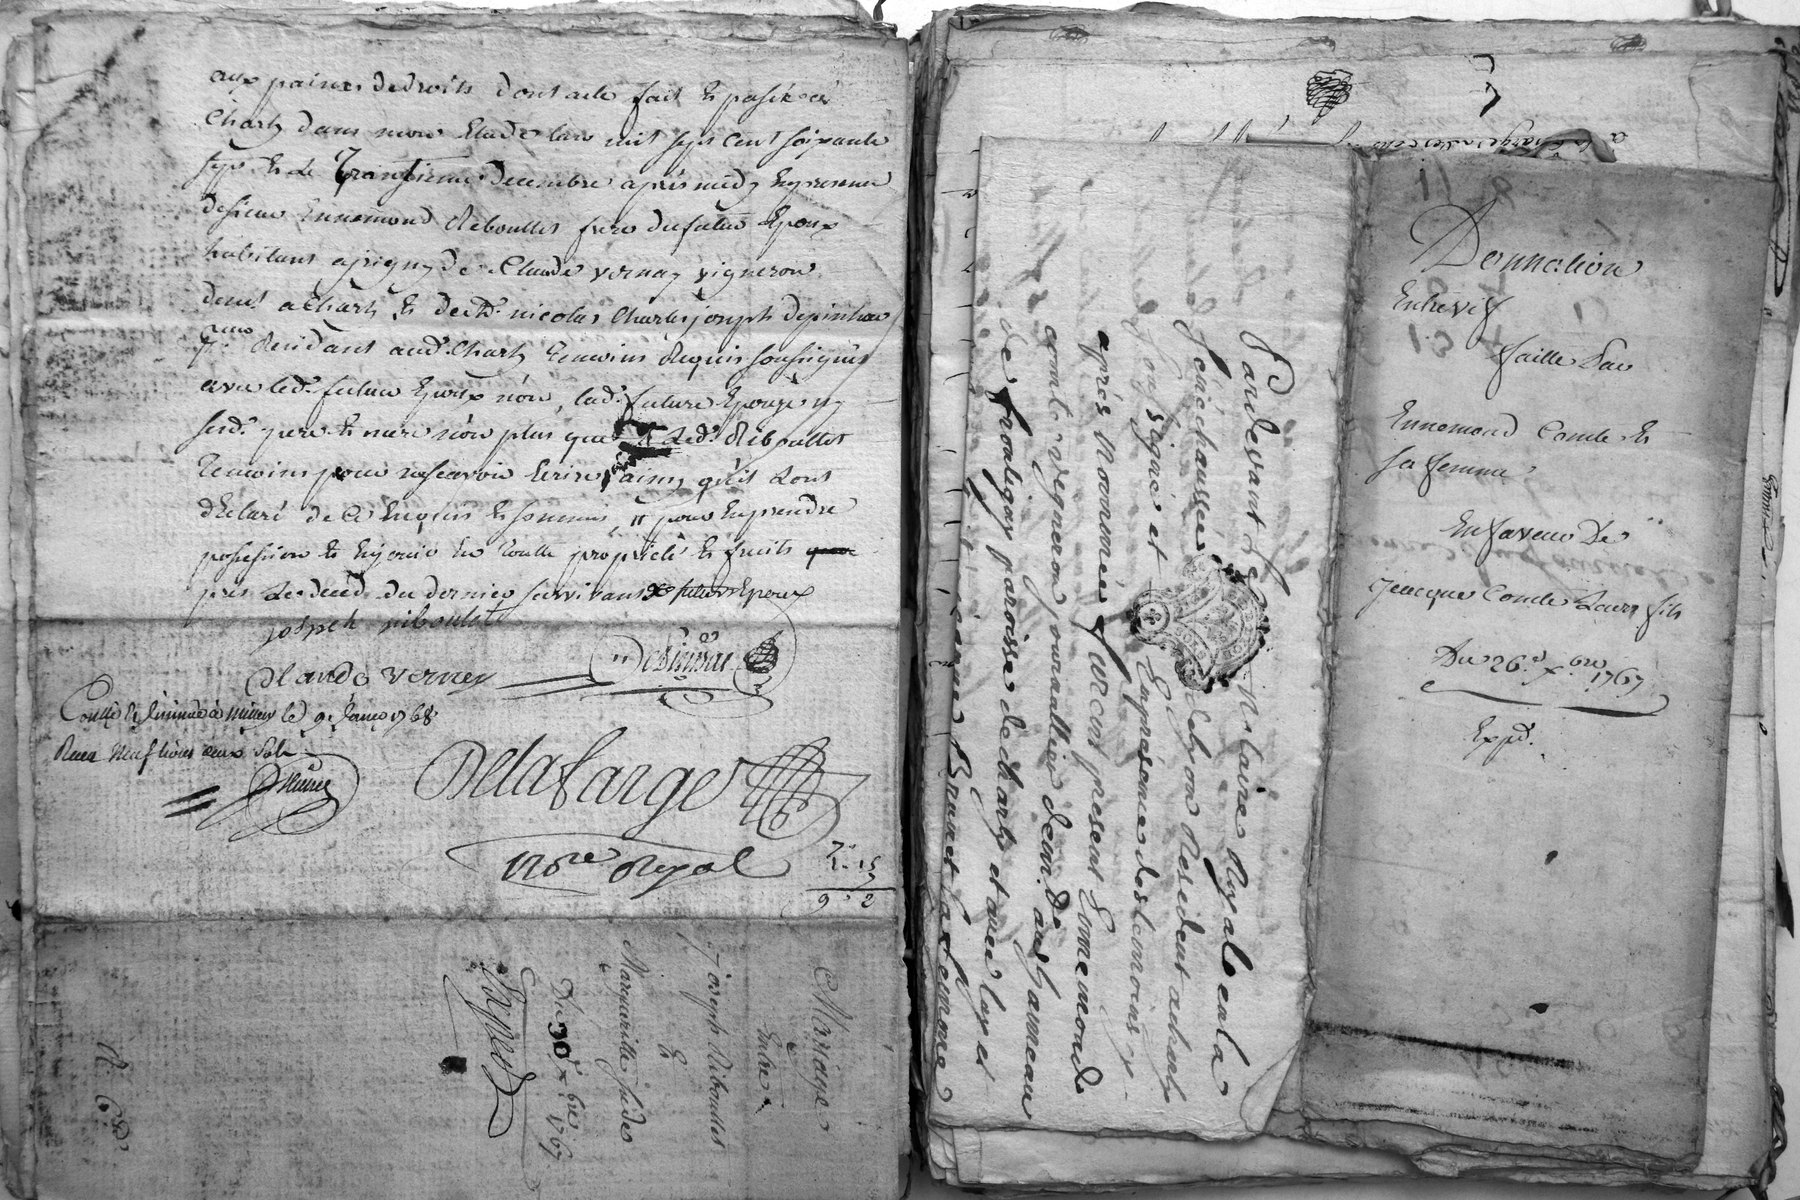 aux paines de droits dont acte fait et passé à
Charly dans mon Etude l'an mil sept cent soixante
sept et le Trantieme Decembre après midy En presence
de sieur Ennemond Riboullet frere du futur Epoux
habitant a Irigny de Claude Vernay vigneron
demt a Charly et de Me nicolas Charles joseph
Residant aud. Charly Temoins Requis soussignés
avec led. futur Epoux nön, lad. future Epouze ny
sesd. pere et mere nön plus que led. Riboullet
Temoins pour ne scavoir Ecrire ainsy qu'ils L'ont
déclaré de ce Enquis et sommés, pour En prendre
possession et En jouir En Toutte proprieté et fruits
près Le deced du dernier survivant
joseph riboulet
Claude verney
Conllé et insinué à le 9e Janer 1768
Reçu Neuf livres deux sols
Delafarge
Nore Royal
7
1. 15
7
9. 2
Mariage
Entre
Joseph Riboullet
Et
Marguerite
Du 30e xbre 1767
Pardevant Le Notaire Royal en la
Sénéchaussée de Lyon Resident a charly
Soussigné et En presence des temoins cy
après Nommées furent present Ennemond
comte vigneron journallier demt. au hammeau
de frontigny paroisse de charly et avec luy et
Brunet sa femme
Donnation
Entrevif
faitte Par
Ennemond Comte et
sa femme
En faveur De
Jeacque Comte Leurs fils
Du 26e xbre 1767
Expd.